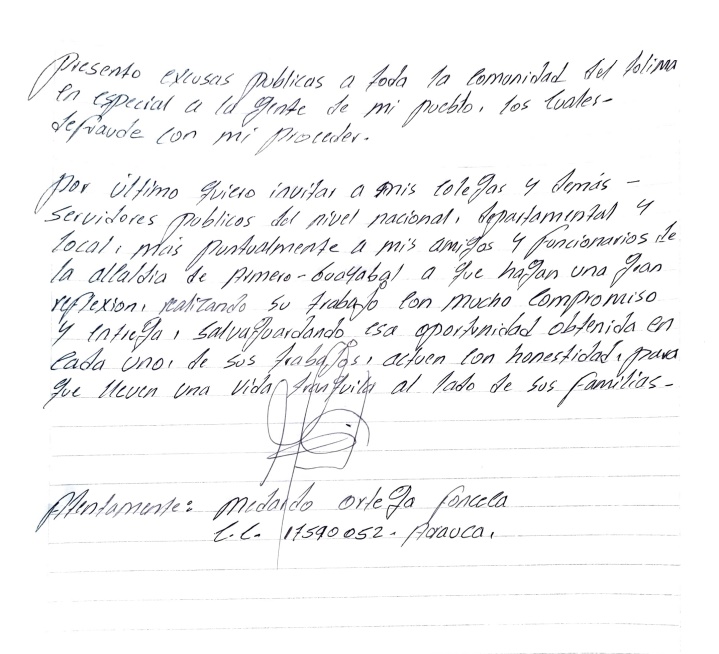 Presento excusas publicas a toda la comonidad del tolima
en especial a la gente de mi pueblo, los cuales-
defraude con mi Proceder.
Por último quiero invitar a mis colegas y demás -
servidores publicos del nivel nacional, departamental y
local, más puntualmente a mis amigos y funcionarios de
la alcaldia de Armero-Guayabal a que hagan una gran
reflexion, realizando su trabajo con mucho compromiso
y entrega, salvaguardando esa oportunidad obtenida en
cada uno, de sus trabajos, actuen con honestidad, para
que lleven una vida tranquila al lado de sus familias-
Atentamente: Medardo Ortega Fonceca
C.C. 17590052. Arauca.